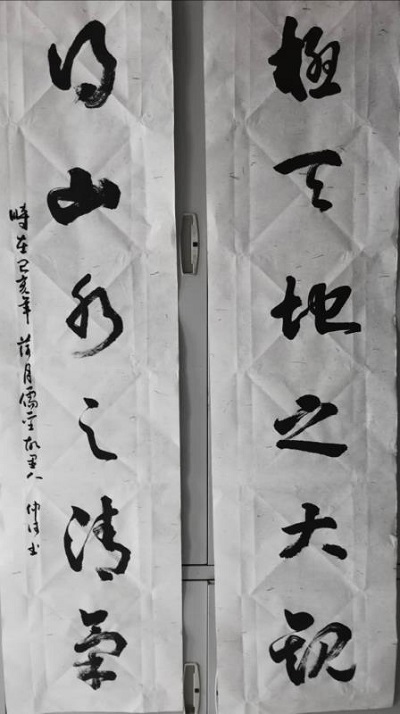 極天地之大觀
得山水之清氣
時在己亥年 荷月儒聖故里人 仲 书